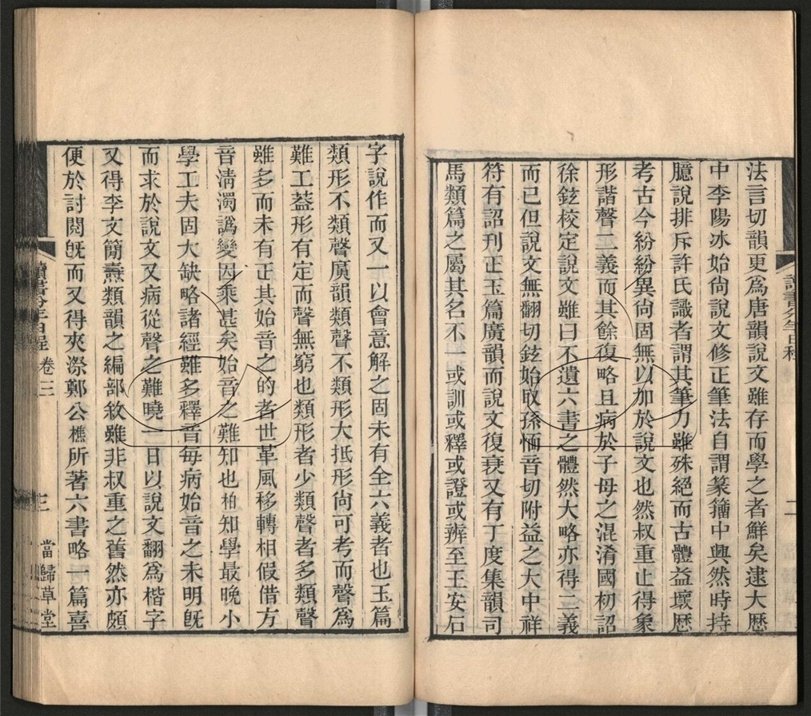 法言切韻更爲唐韻說文雖存而學之者鮮矣逮大厯
中李陽冰始尙說文修正筆法自謂篆籒中興然時持
臆說排斥許氏識者謂其筆力雖殊絕而古體益壞厯
考古今紛紛異尙固無以加於說文也然叔重止得象
形諧聲二義而其餘復略且病於子母之混淆國初詔
徐鉉校定說文雖曰不遺六書之體然大略亦得二義
而已但說文無翻切鉉始取孫愐音切附益之大中祥
符有詔刊正玉篇廣韻而說文復衰又有丁度集韻司
馬類篇之屬其名不一或訓或釋或證或辨至王安石
讀書分年日程
二
字說作而又一以會意解之固未有全六義者也玉篇
類形不類聲廣韻類聲不類形大抵形尙可考而聲爲
難工葢形有定而聲無窮也類形者少類聲者多類聲
雖多而未有正其始音之的者世革風移轉相假借方
音淸濁譌變因乘甚矣始音之難知也柏知學最晚小
學工夫固大缺略諸經雖多釋音每病始音之未明旣
而求於說文又病從聲之難曉一日以說文翻爲楷字
又得李文簡燾類韻之編部敘雖非叔重之舊然亦頗
便於討閱旣而又得夾漈鄭公樵所著六書略一篇喜
讀書分年日程 卷三
三 當歸草堂